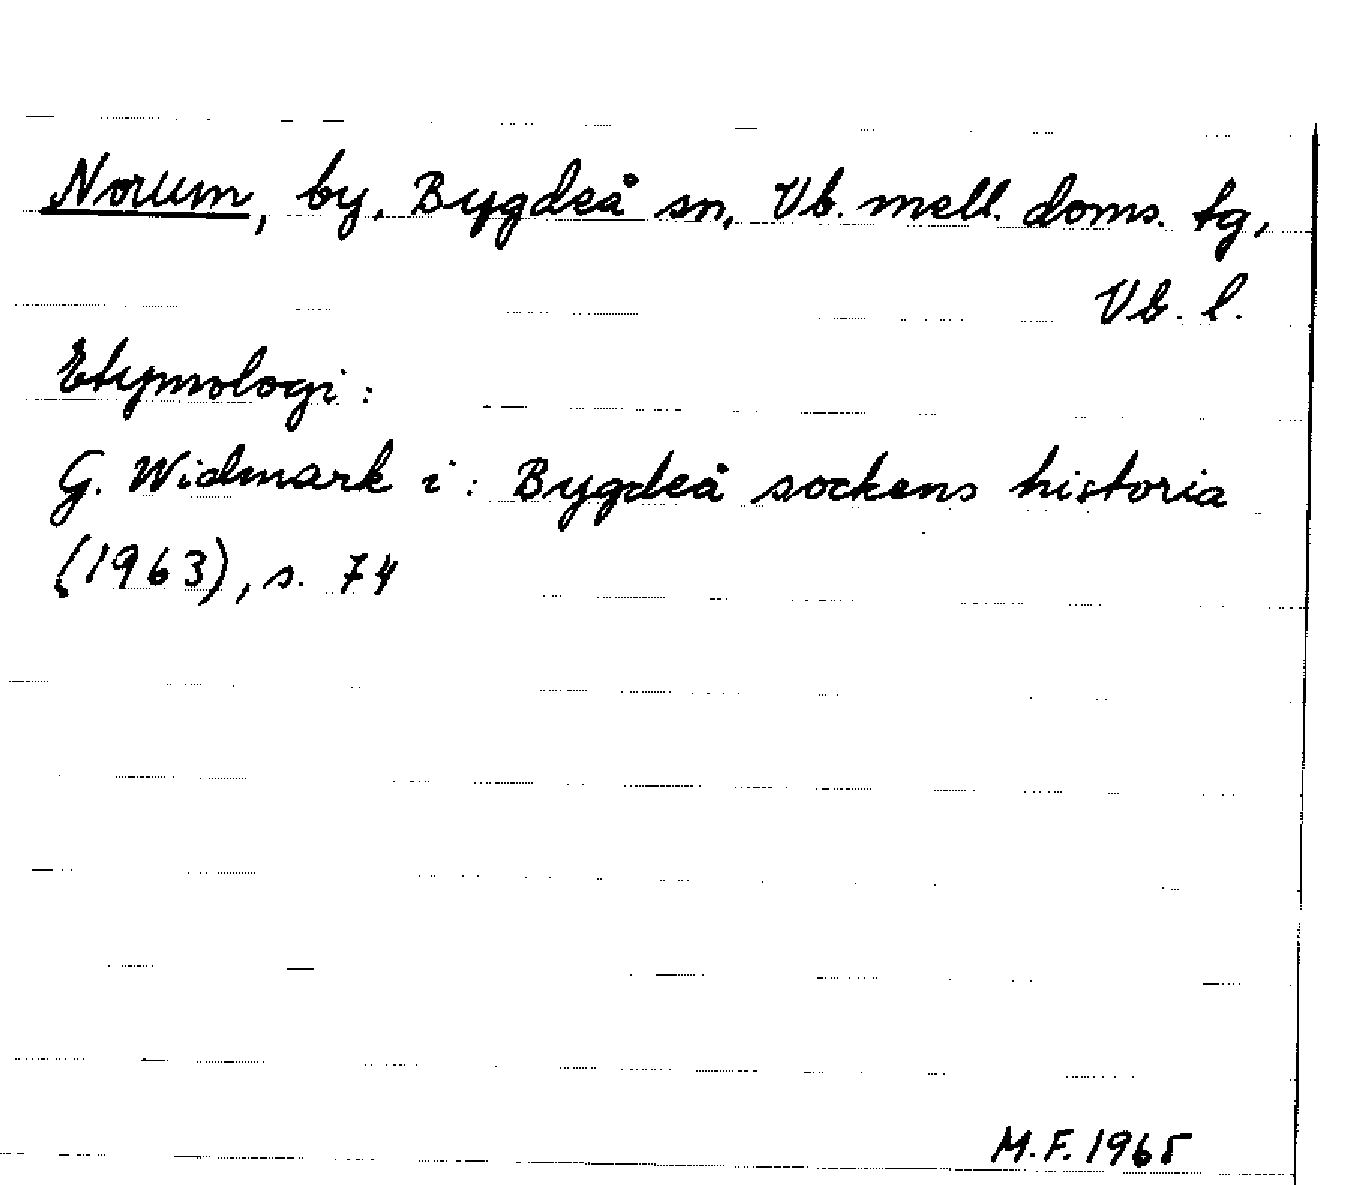 Norum, by, Bygdeå sn, Vb. mell. doms. tg,
Vb. l.
Etymologi:
G. Widmark i: Bygdeå sockens historia
(1963), s. 74
M.F. 1965